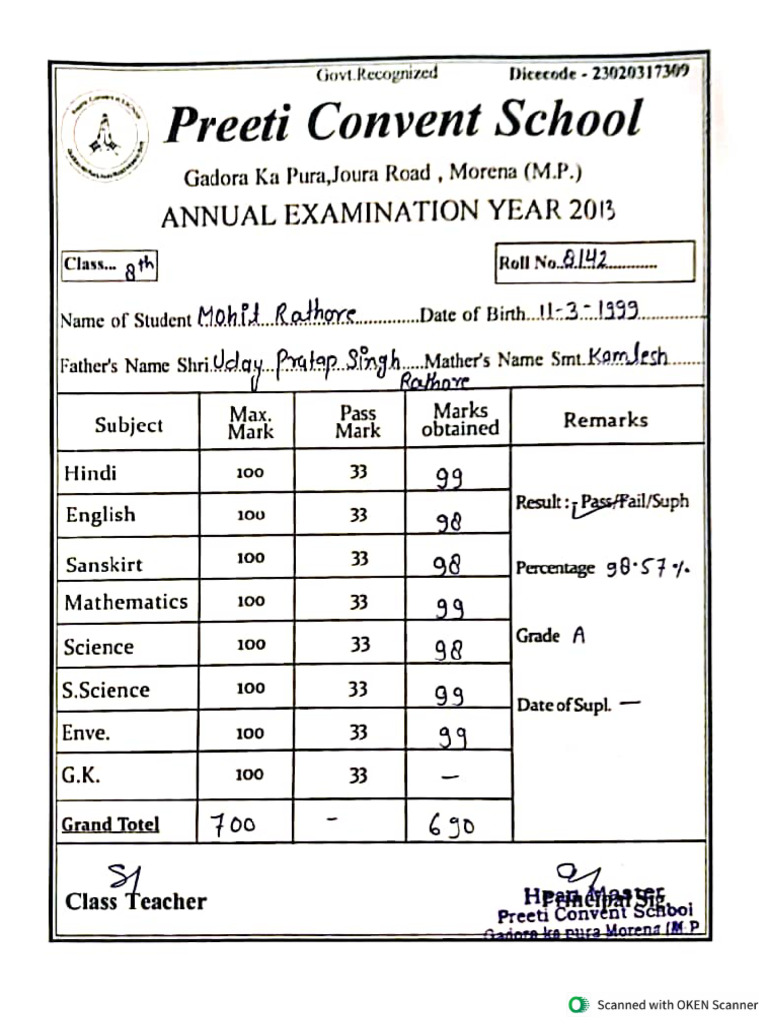 Govt.Recognized Dicecode - 23020317309
Preeti Convent School
Gadora Ka Pura,Joura Road , Morena (M.P.)
ANNUAL EXAMINATION YEAR 2013
Class... 8th Roll No..8142............
Name of Student Mohit Rathore...............Date of Birth..11-3-1999...............
Father's Name Shri.Uday Pratap Singh.....Mather's Name Smt.Kamlesh.......
Rathore
Subject Max. Mark Pass Mark Marks obtained Remarks
Hindi 100 33 99
English 100 33 98 Result : Pass/Fail/Suph
Sanskirt 100 33 98 Percentage 98.57 %
Mathematics 100 33 99
Science 100 33 98 Grade A
S.Science 100 33 99 Date of Supl. —
Enve. 100 33 99
G.K. 100 33 —
Grand Totel 700 - 690
Class Teacher Principal Sig.
Preeti Convent School
Gadora ka pura Morena (M.P
Scanned with OKEN Scanner